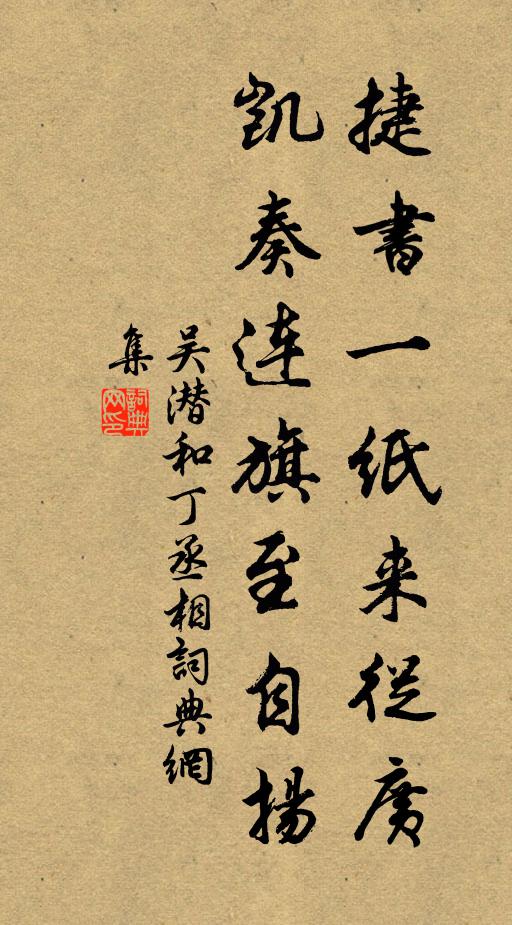 捷書一紙来從廣
凱奏连旗至自揚
吴潜和丁丞相詞典網
集
詞典
网印